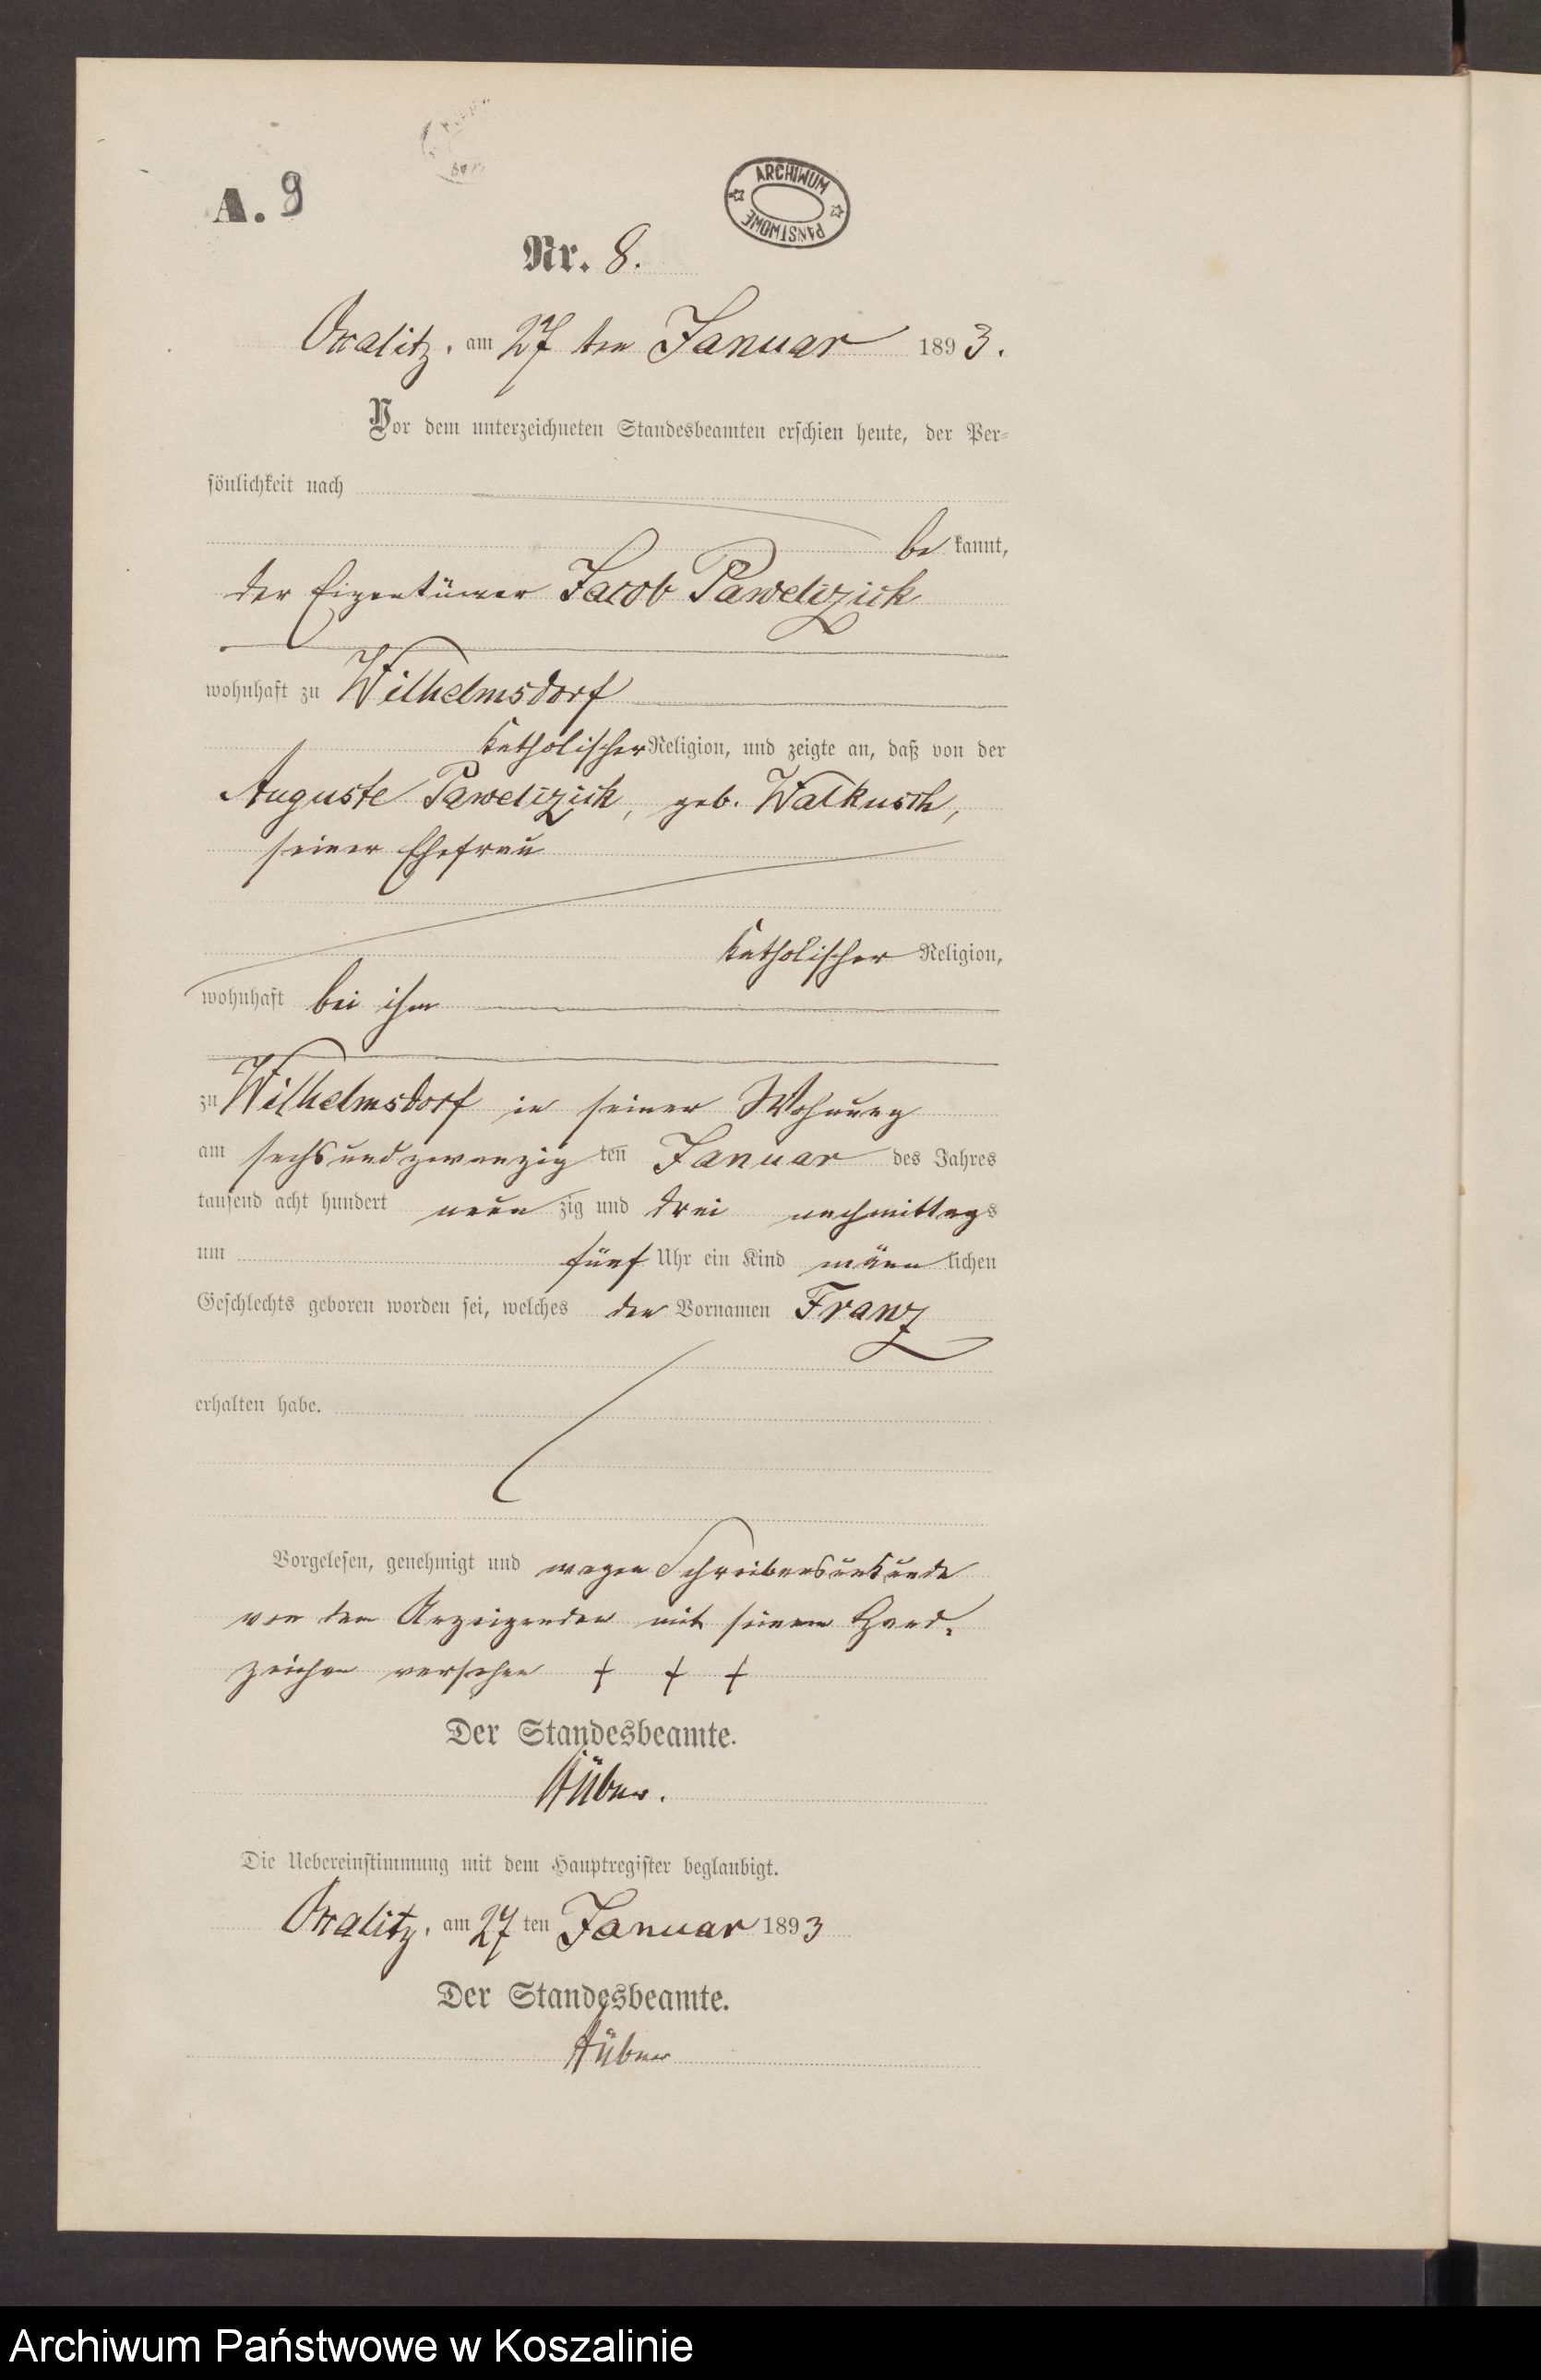 A. 9
ARCHIWUM PAŃSTWOWE
Nr. 8.
am 27 ten Januar 1893.
Vor dem unterzeichneten Standesbeamten erschien heute, der Per-
sönlichkeit nach
be kannt,
der Eigentümer Jacob Pawelczick
wohnhaft zu Wilhelmsdorf
katholischer Religion, und zeigte an, daß von der
Auguste Pawelczick, geb. Walkusch,
seiner Ehefrau
katholischer Religion,
wohnhaft bei ihm
zu Wilhelmsdorf in seiner Wohnung
am sechsundzwanzig ten Januar des Jahres
tausend acht hundert neun zig und drei nachmittags
um fünf Uhr ein Kind männ lichen
Geschlechts geboren worden sei, welches den Vornamen Franz
erhalten habe.
Vorgelesen, genehmigt und wegen Schreibensunkunde
von dem Anzeigenden mit seinem Hand-
zeichen versehen + + +
Der Standesbeamte.
Die Uebereinstimmung mit dem Hauptregister beglaubigt.
am 27 ten Januar 1893
Der Standesbeamte.
Archiwum Państwowe w Koszalinie